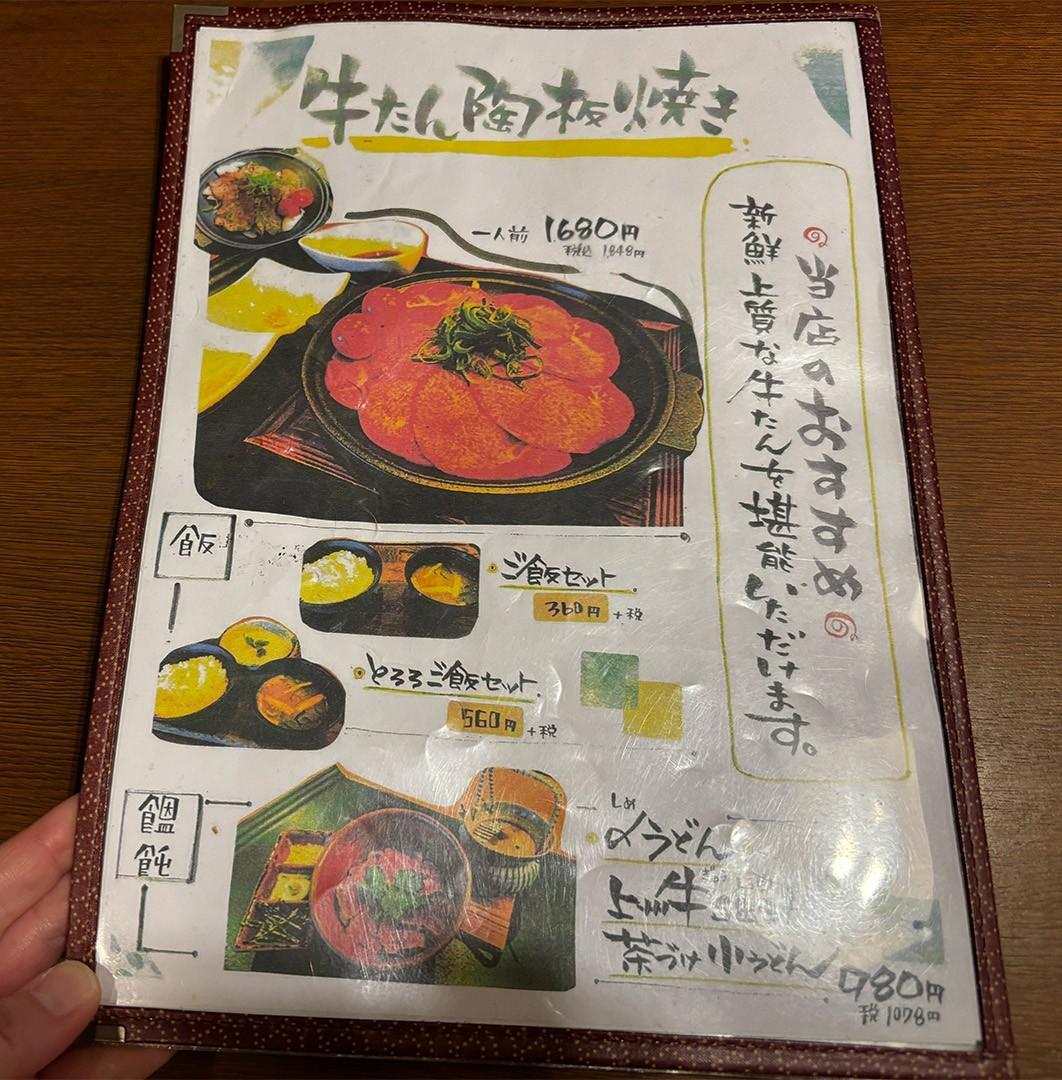 牛たん陶板焼き
一人前 1,680円
税込 1,848円
当店のおすすめ
新鮮上質な牛たんを堪能いただけます。
飯
ご飯セット
360円 +税
とろろご飯セット
560円 +税
饂飩
しめ
〆うどん
上牛
茶づけ小うどん
980円
税 1078円